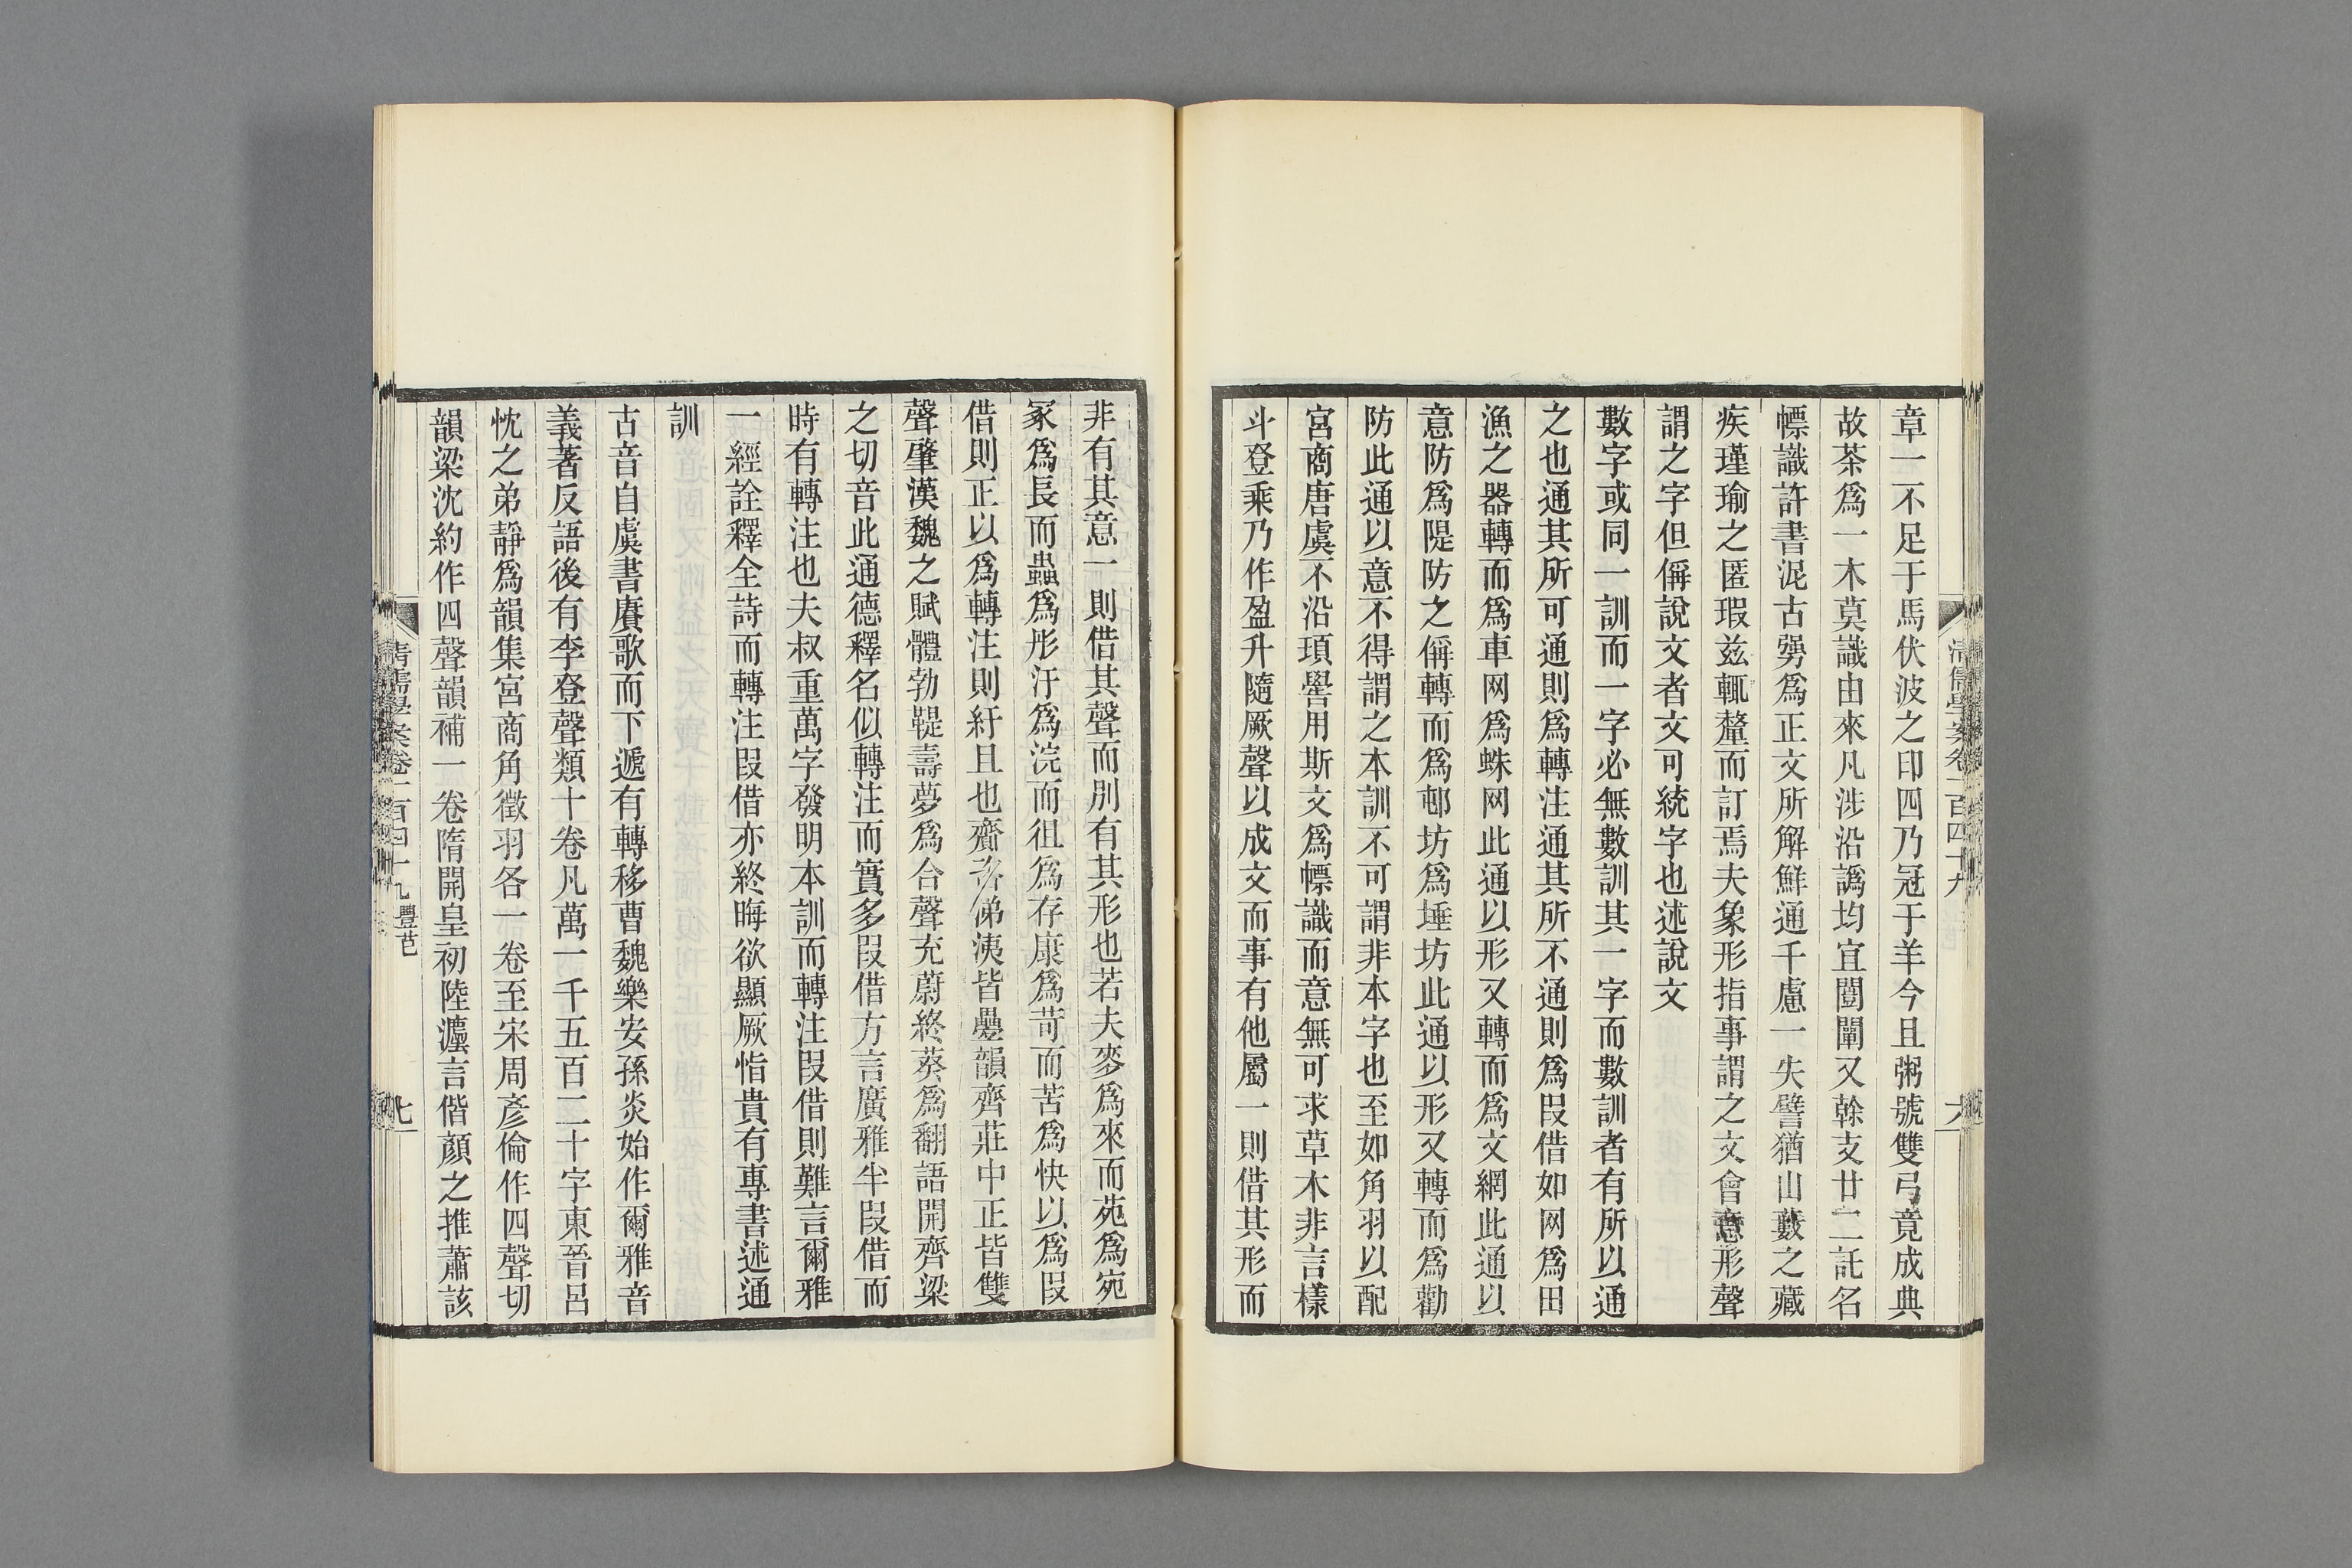 章一一不足于馬伏波之印四乃冠于羊今且粥號雙弓竟成典
故茶爲一木莫識由來凡涉沿譌均宜闓闡又榦支廿二託名
幖識許書泥古彊爲正文所解鮮通千慮一失譬猶山藪之藏
疾瑾瑜之匿瑕兹輒釐而訂焉夫象形指事謂之文會意形聲
謂之字但偁說文者文可統字也述說文
數字或同一訓而一字必無數訓其一字而數訓者有所以通
之也通其所可通則爲轉注通其所不通則爲叚借如网爲田
漁之器轉而爲車网爲蛛网此通以形又轉而爲文網此通以
意防爲隄防之偁轉而爲邨坊爲埵坊此通以形又轉而爲勸
防此通以意不得謂之本訓不可謂非本字也至如角羽以配
宮商唐虞不沿頊嚳用斯文爲幖識而意無可求草木非言樣
斗登乘乃作盈升隨厥聲以成文而事有他屬一則借其形而
清儒學案卷一百四十九
非有其意一則借其聲而別有其形也若夫麥爲來而苑爲宛
冢爲長而蟲爲彤汙爲浣而徂爲存康爲苛而苦爲快以爲叚
借則正以爲轉注則紆且也齎咨涕洟皆疊韻齊莊中正皆雙
聲肇漢魏之賦體勃鞮壽夢爲合聲充蔚終葵爲翻語開齊梁
之切音此通德釋名似轉注而實多叚借方言廣雅半叚借而
時有轉注也夫叔重萬字發明本訓而轉注叚借則難言爾雅
一經詮釋全詩而轉注叚借亦終晦欲顯厥恉貴有專書述通
訓
古音自虞書賡歌而下遞有轉移曹魏樂安孫炎始作爾雅音
義著反語後有李登聲類十卷凡萬一千五百二十字東晉呂
忱之弟靜爲韻集宮商角徵羽各一卷至宋周彥倫作四聲切
韻梁沈約作四聲韻補一卷隋開皇初陸灋言偕顏之推蕭該
清儒學案卷一百四十九 豐芑 七